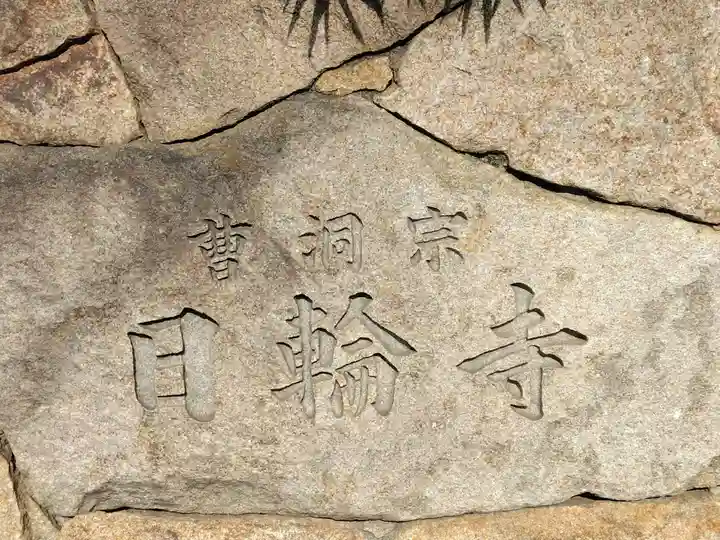 曹洞宗
日輪寺